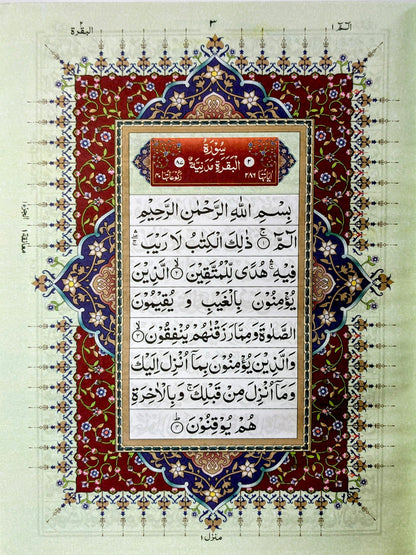 الٓمّٓ ١
٣
البقرة ٢
سُوْرَةُ
الْبَقَرَةِ مَدَنِيَّةٌ
٢
٨٧
اٰيَاتُهَا ٢٨٦
رُكُوْعَاتُهَا ٤٠
بِسْمِ اللّٰهِ الرَّحْمٰنِ الرَّحِيْمِ
الٓمّٓ ۚ ١ ذٰلِكَ الْكِتٰبُ لَا رَيْبَ ۛ
فِيْهِ ۛ هُدًى لِّلْمُتَّقِيْنَ ۙ ٢ الَّذِيْنَ
يُؤْمِنُوْنَ بِالْغَيْبِ وَ يُقِيْمُوْنَ
الصَّلٰوةَ وَمِمَّا رَزَقْنٰهُمْ يُنْفِقُوْنَ ۙ ٣
وَالَّذِيْنَ يُؤْمِنُوْنَ بِمَاۤ اُنْزِلَ اِلَيْكَ
وَمَاۤ اُنْزِلَ مِنْ قَبْلِكَ ۚ وَ بِالْاٰخِرَةِ
هُمْ يُوْقِنُوْنَ ؕ ٤
منزل ١